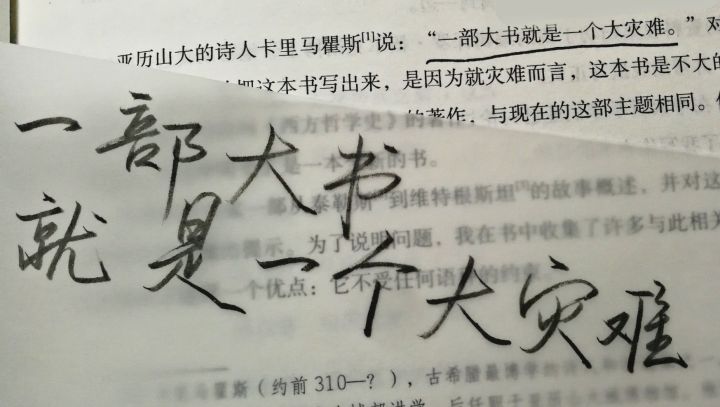 亚历山大的诗人卡里马瞿斯[1]说：“一部大书就是一个大灾难。”对
把这本书写出来，是因为就灾难而言，这本书是不大的
的著作，与现在的这部主题相同。
一部大书
就是一个大灾难
《西方哲学史》的著作
是一本 的书。
一部从泰勒斯 到维特根斯坦[2]的故事概述，并对这
提示。为了说明问题，我在书中收集了许多与此相关
一个优点：它不受任何语 的约束
马瞿斯（约前310—？），古希腊最博学的